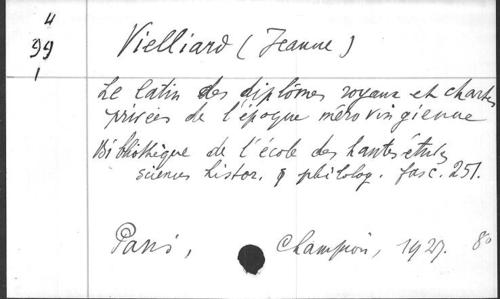 4
99
1
Vielliard (Jeanne)
Le latin des diplômes royaux et chartes
privées de l'époque mérovingienne
Bibliothèque de l'école des hautes études
sciences histor. & philolog. fasc. 251.
Paris, Champion, 1927. 8o